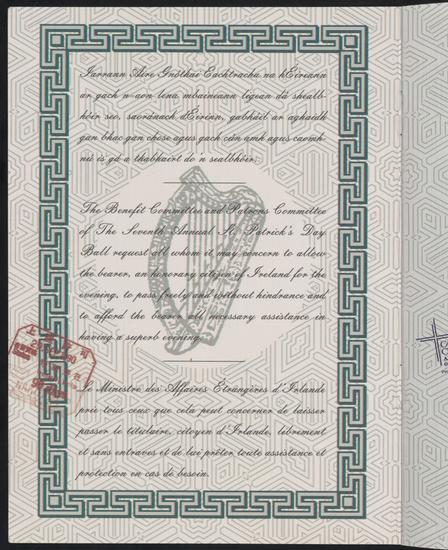 Iarrann Aire Gnóthaí Eachtracha na hÉireann
ar gach n-aon lena mbaineann ligean dá shealbh-
hóir seo, saoránach d'Éirinn, gabháil ar aghaidh
gan bhac gan chosc agus gach cúnamh agus caomh-
nú is gá a thabhairt do'n sealbhóir.
The Benefit Committee and Patrons Committee
of The Seventh Annual St. Patrick's Day
Ball request all whom it may concern to allow
the bearer, an honorary citizen of Ireland for the
evening, to pass freely and without hindrance and
to afford the bearer all necessary assistance in
having a superb evening.
Le Ministre des Affaires Etrangères d'Irlande
prie tous ceux que cela peut concerner de laisser
passer le titulaire, citoyen d'Irlande, librement
et sans entraves et de lui prêter toute assistance et
protection en cas de besoin.